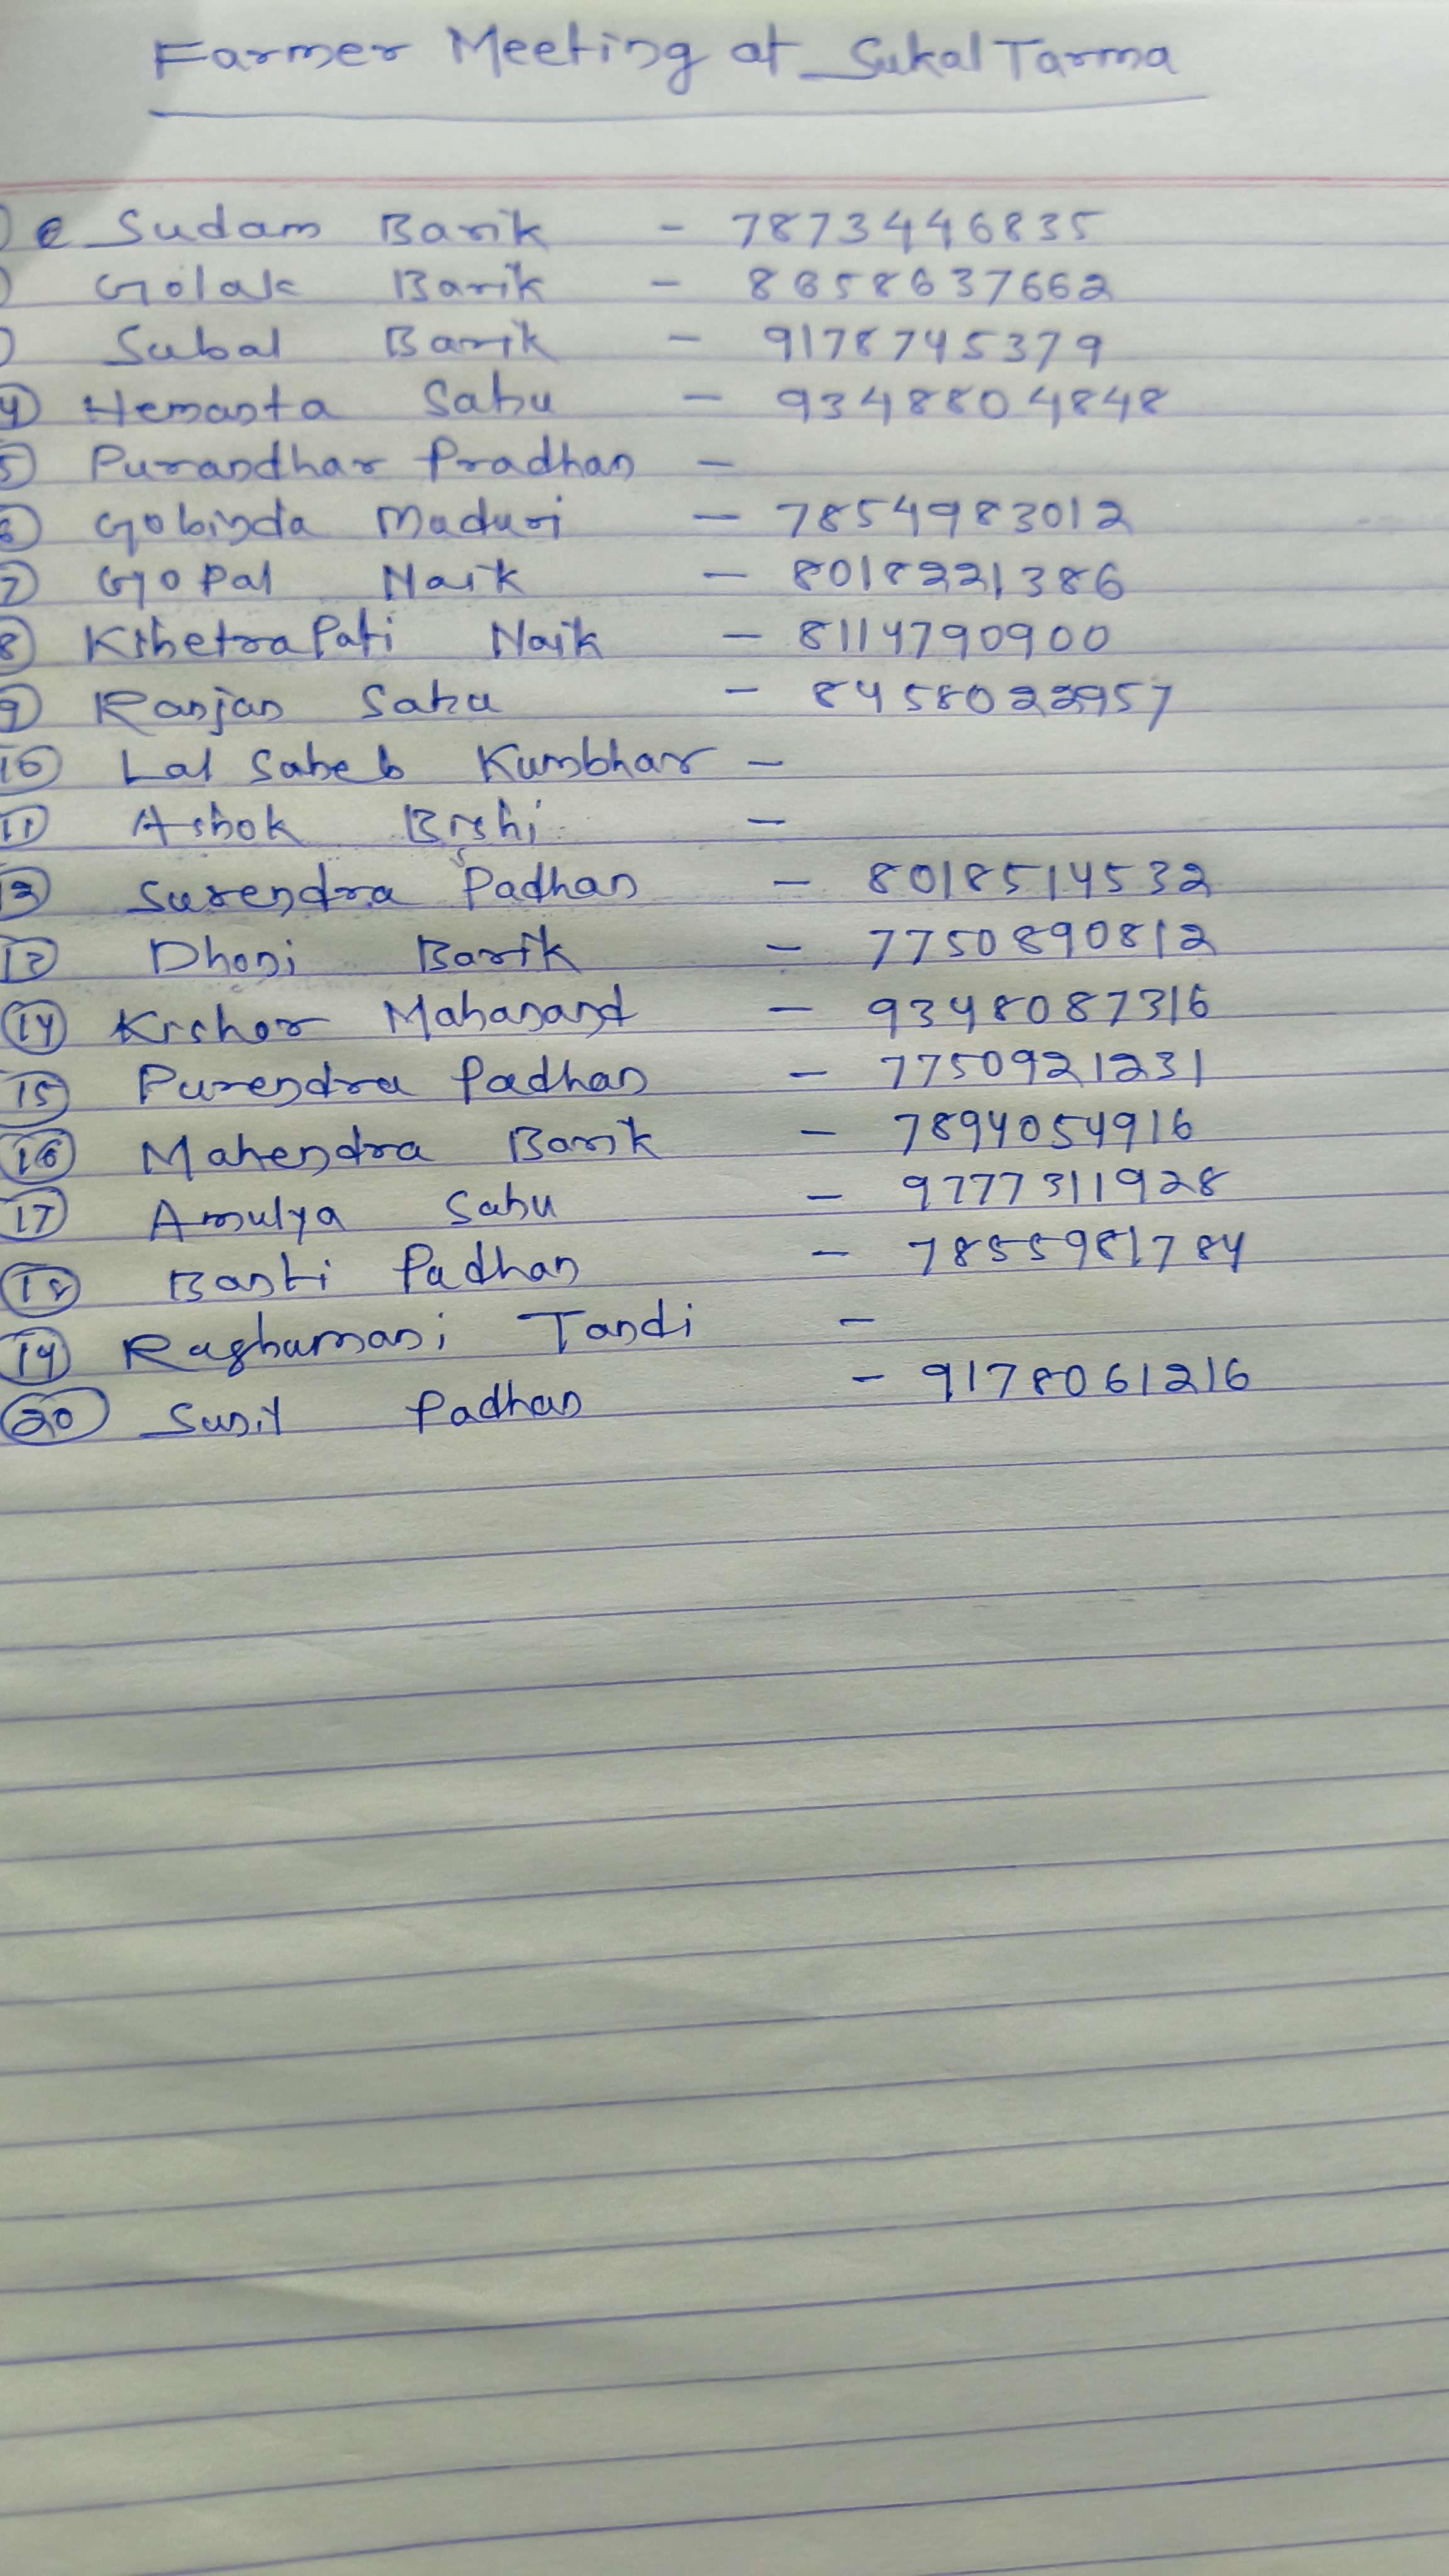 Farmer Meeting at Sukal Tarma
Sudam Barik - 7873446835
Golak Barik - 8658637662
Subal Barik - 9178745379
4 Hemanta Sahu - 9348804848
5 Purandhar Pradhan -
6 Gobinda Maduri - 7854983012
7 Gopal Naik - 8018221386
8 Kshetra Pati Naik - 8114790900
9 Ranjan Sahu - 8458022957
10 Lal Saheb Kumbhar -
11 Ashok Bishi -
12 Surendra Padhan - 8018514532
13 Dhoni Barik - 7750890812
14 Kishor Mahanand - 9348087316
15 Purendra Padhan - 7750921231
16 Mahendra Barik - 7894054916
17 Amulya Sahu - 9777311928
18 Banti Padhan - 7855981784
19 Raghumani Tandi -
20 Sunil Padhan - 9178061216